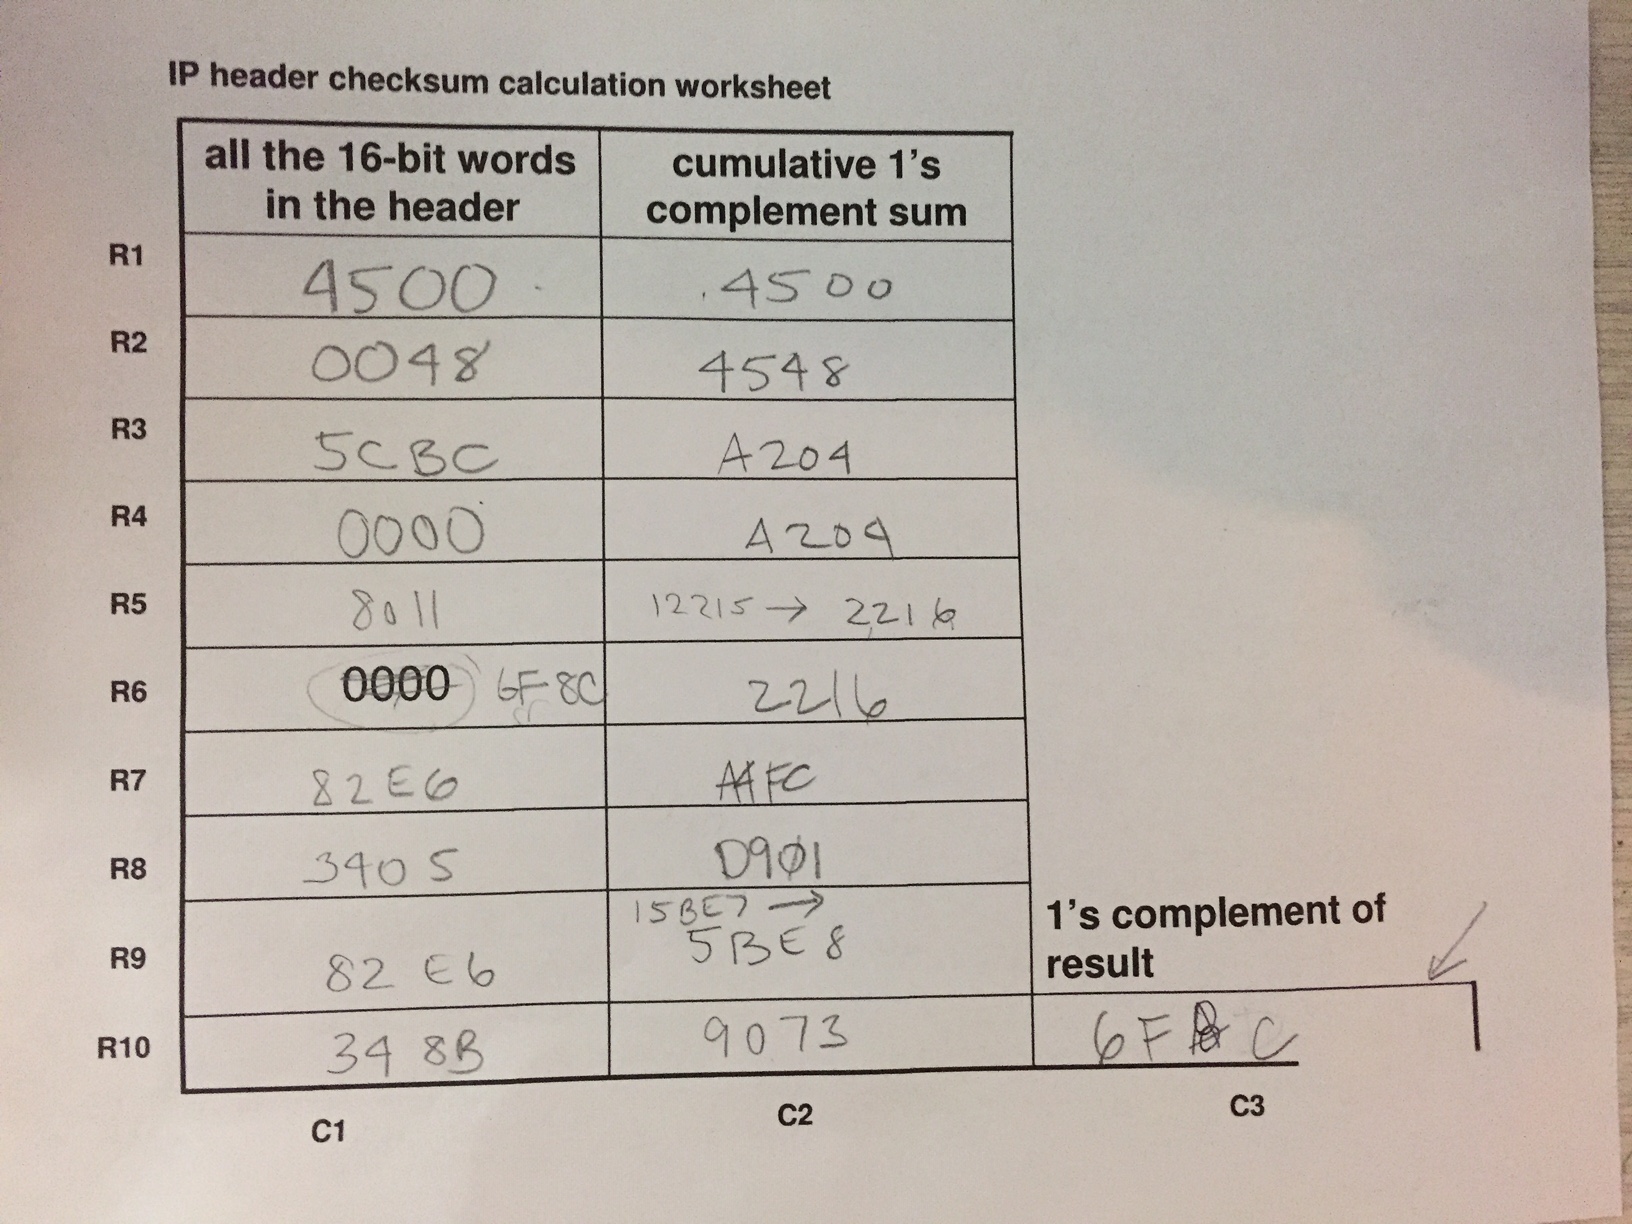 IP header checksum calculation worksheet
all the 16-bit words
in the header
cumulative 1's
complement sum
R1 4500 4500
R2 0048 4548
R3 5CBC A204
R4 0000 A204
R5 8011 12215 → 2216
R6 0000 6F8C 2216
R7 82E6 A4FC
R8 3405 D901
R9 82E6 15BE7 → 5BE8
1's complement of
result
R10 348B 9073 6F8C
C1 C2 C3